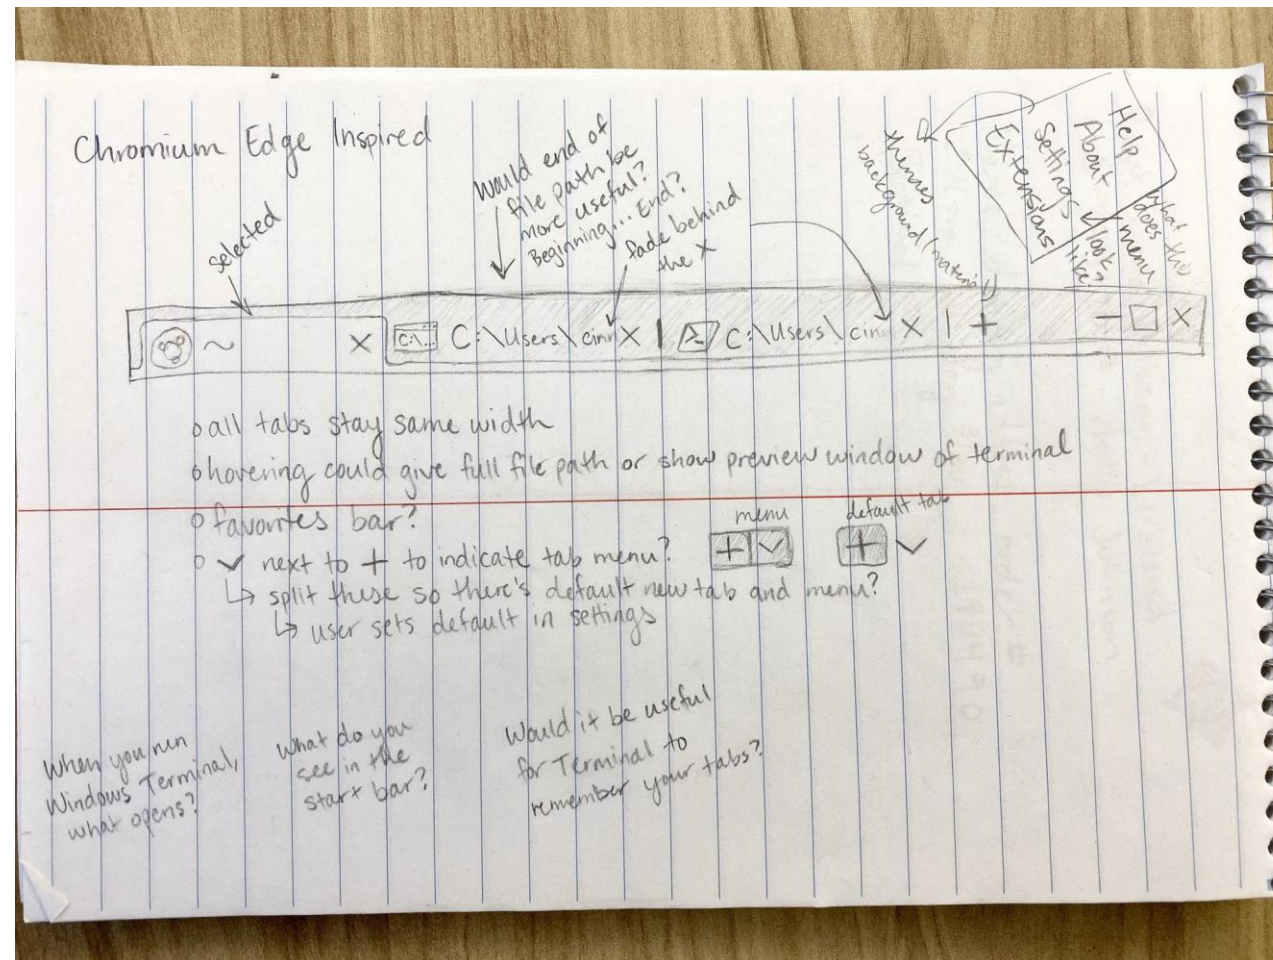 Chromium Edge Inspired
selected
Would end of
file path be
more useful?
Beginning... End?
fade behind
the X
themes
background (material)
Help
About
Settings
Extensions
what
does this
menu
look
like?
~ X C:\.. C:\Users\cinn X | >_ C:\Users\cinn X | + — □ X
o all tabs stay same width
o hovering could give full file path or show preview window of terminal
o favorites bar?
o ✓ next to + to indicate tab menu?
menu
+ ✓
default tab
+ ✓
↳ split these so there's default new tab and menu?
↳ user sets default in settings
When you run
Windows Terminal,
what opens?
What do you
see in the
start bar?
Would it be useful
for Terminal to
remember your tabs?